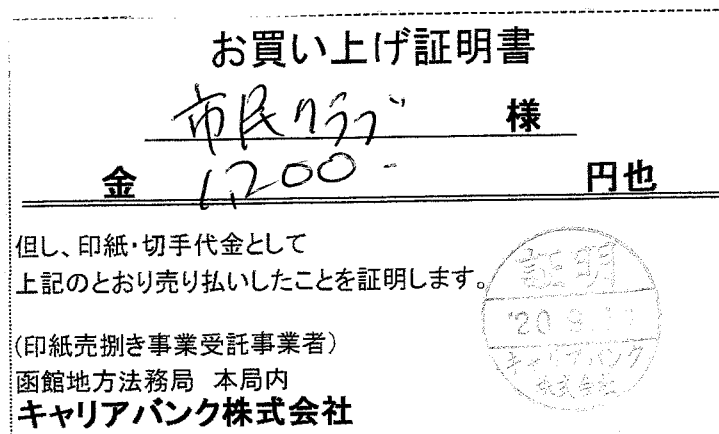 お買い上げ証明書
市民クラブ 様
金 1,200- 円也
但し、印紙・切手代金として
上記のとおり売り払いしたことを証明します。
証明
'20 9.
キャリアバンク
株式会社
(印紙売捌き事業受託事業者)
函館地方法務局 本局内
キャリアバンク株式会社